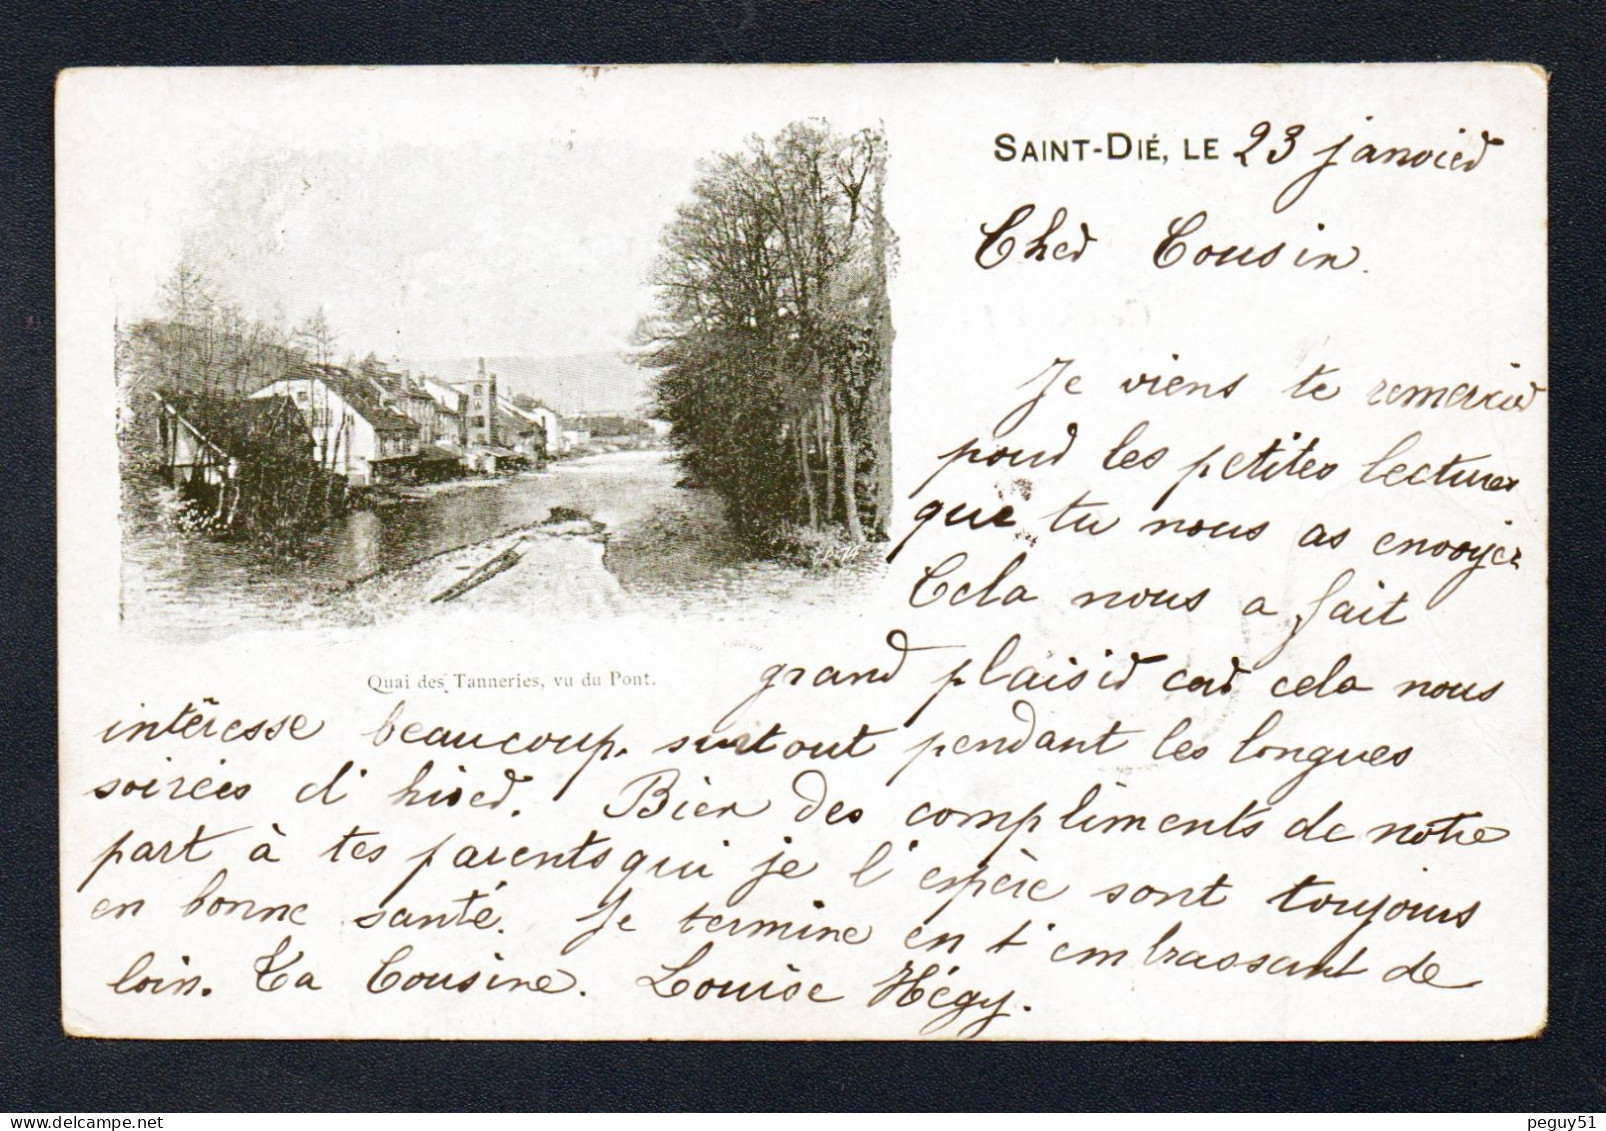 SAINT-DIÉ, LE 23 janvier
Cher Cousin.
Je viens te remercier
pour les petites lectures
que tu nous as envoyer
Cela nous a fait
Quai des Tanneries, vu du Pont.
grand plaisir car cela nous
intéresse beaucoup. surtout pendant les longues
soirées d'hiver. Bien des compliments de notre
part à tes parents qui je l'espère sont toujours
en bonne santé. Je termine en t'embrassant de
loin. Ta Cousine. Louise Hégy.
peguy51